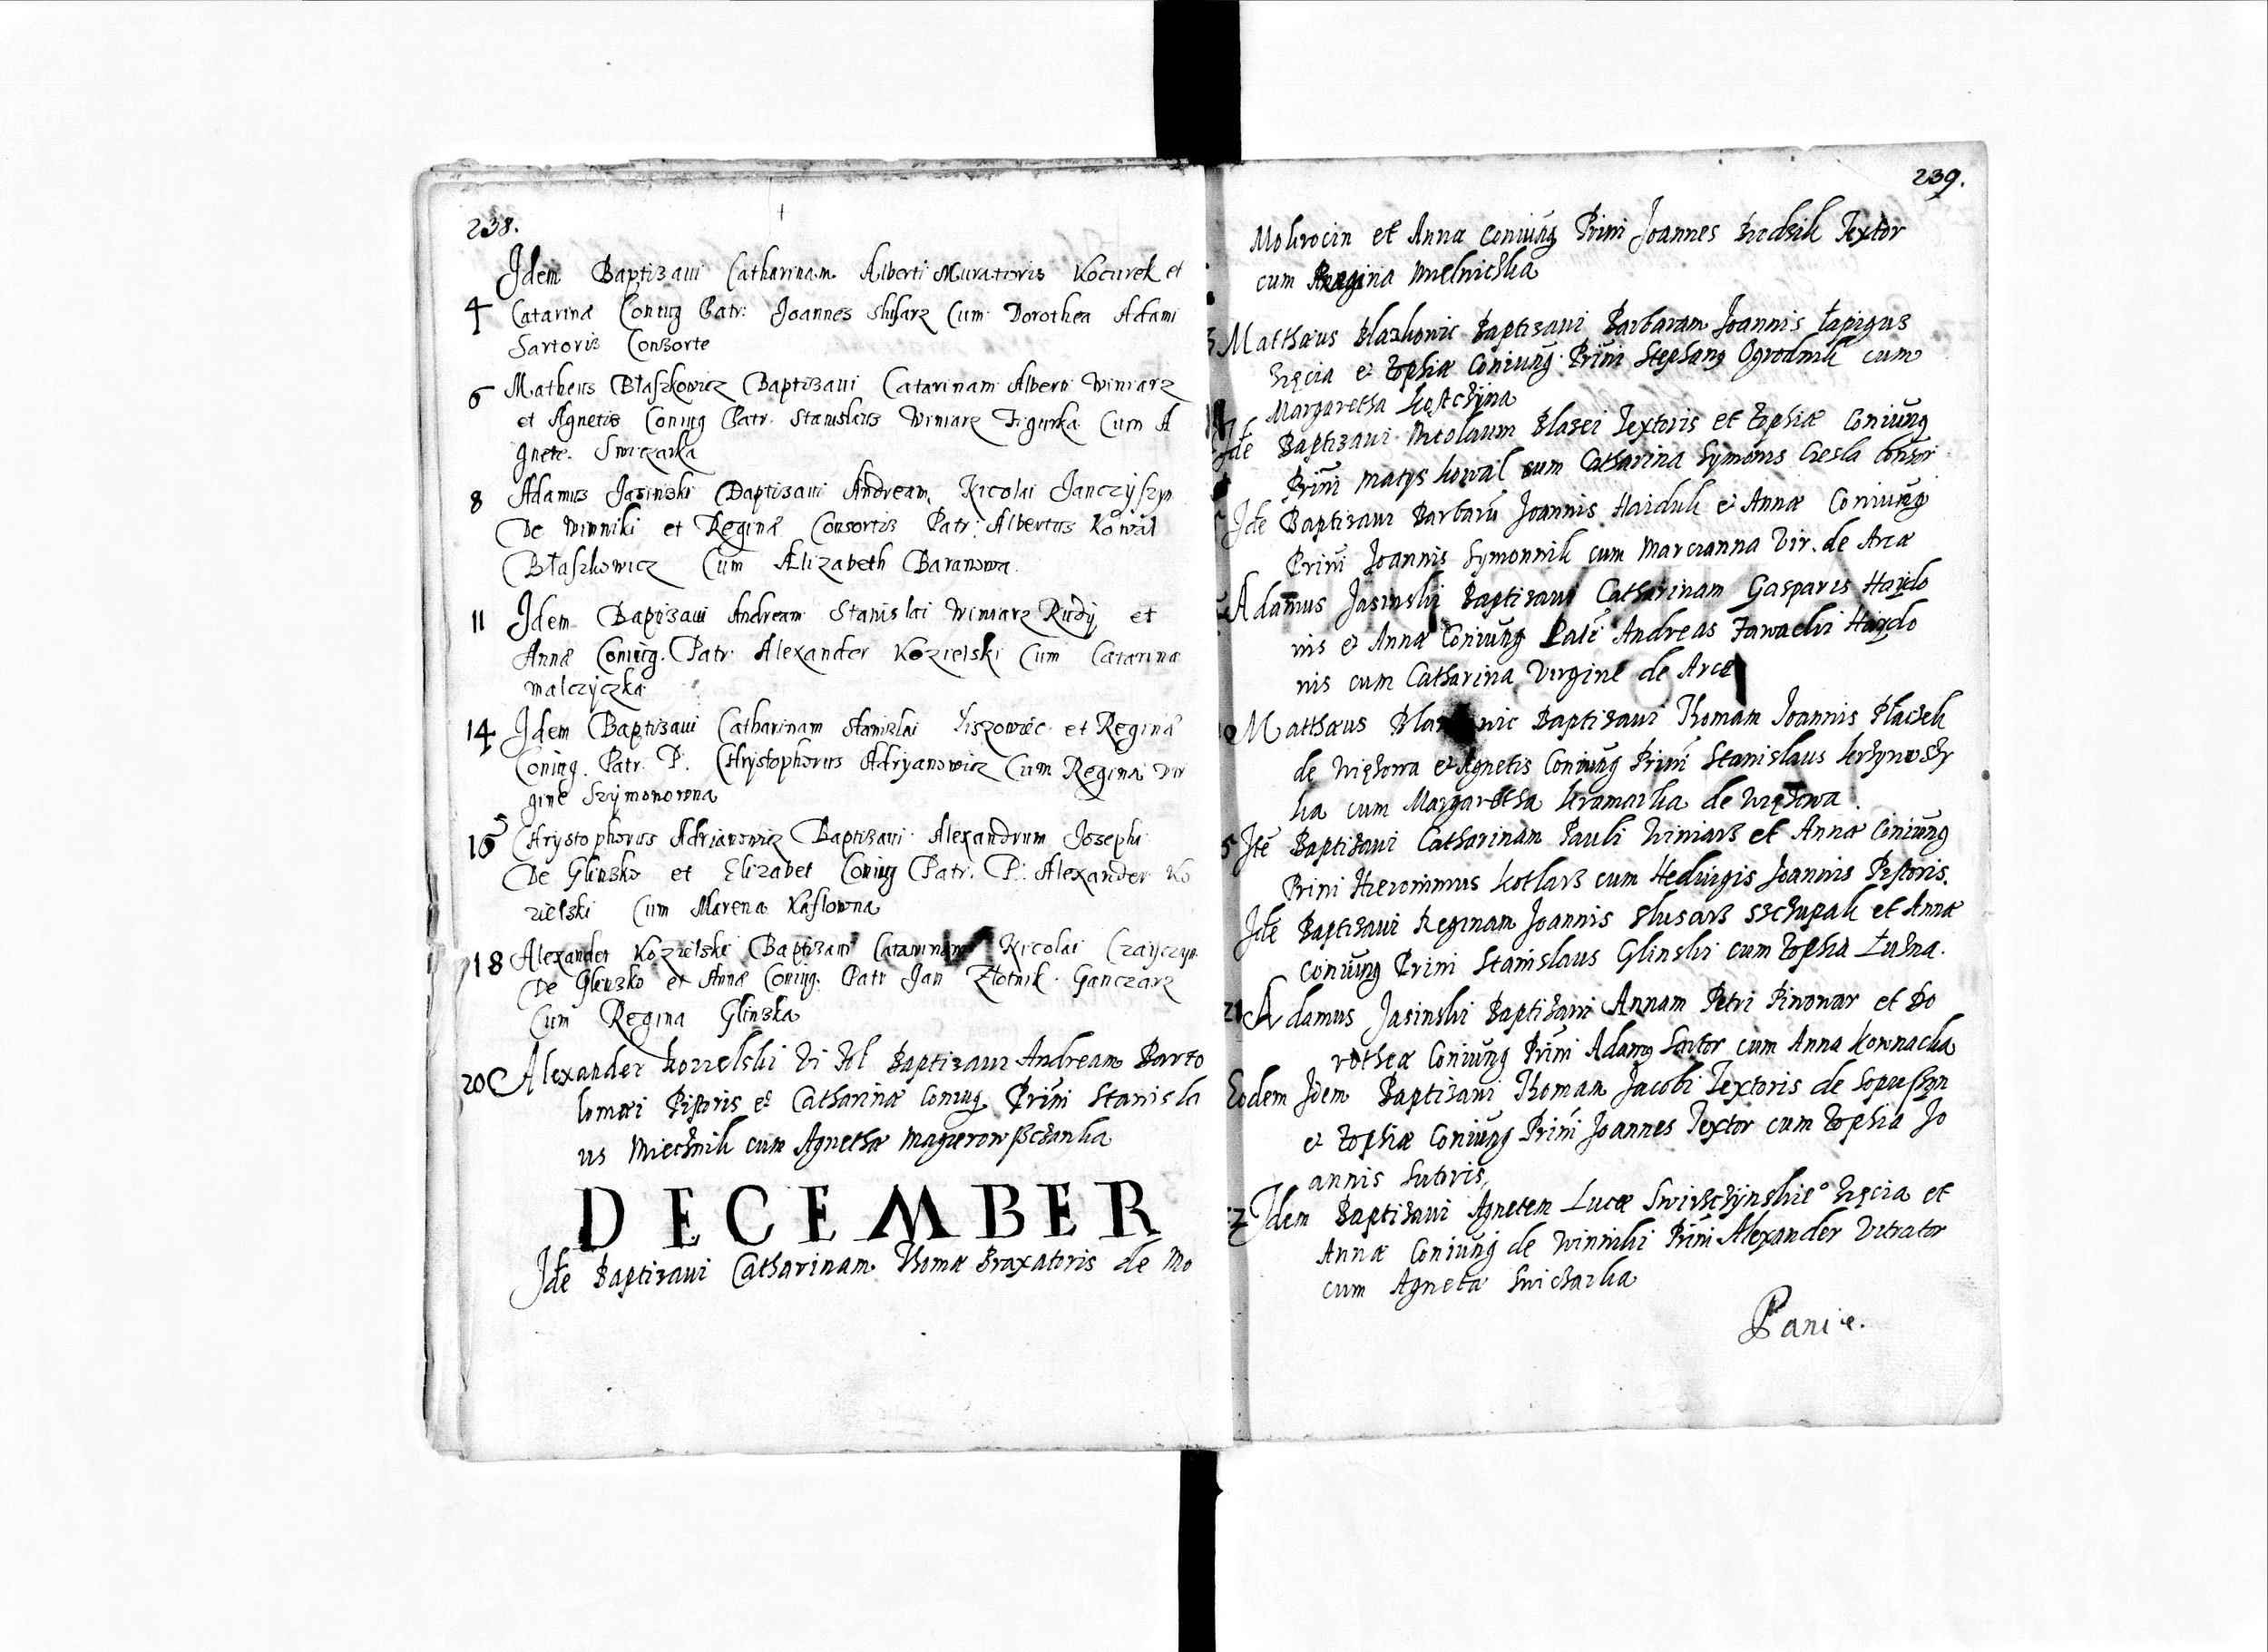 238.
Idem Baptisaui Catharinam Alberti Muratoris Kocurek et
4 Catarinæ Coniug Patr: Joannes Slusarz Cum Dorothea Adami
Sartoris Consorte
6 Matheus Błaszkowicz Baptisaui Catarinam Alberti Winiarz
et Agnetis Coniug Patr. Stanislaus Winiarz Figurka Cum A
gnete. Swiczarka
8 Adamus Jasinski Baptisaui Andream Nicolai Janczyszyn
De Winniki et Reginæ Consortis Patr: Albertus Kowal
Błaszkowicz Cum Elizabeth Baranowa.
11 Idem Baptisaui Andream Stanislai Winiarz Rudy et
Annæ Coniug. Patr. Alexander Kozielski Cum Catarina
malczyczka
14 Idem Baptisaui Catharinam Stanislai Liszowic et Reginæ
Coniug. Patr. P. Chrystophorus Adryanowicz Cum Regina Vir
gine Szymonowna
16 Chrystophorus Adrianowicz Baptisaui Alexandrum Josephi
De Glinsko et Elizabet Coniug Patr. P. Alexander Ko
zielski Cum Marena
18 Alexander Kozielski Baptisaui Catarinam Nicolai
De Glinsko et Annæ Coniug. Patr Jan Złotnik Ganczarz
Cum Regina Glinska
20 Alexander Kozielski Vi Baptisaui Andream Barto
lomæi Pistoris et Catharinæ Coniug Prini Stanisla
us Miecznik cum Agnetha
DECEMBER
Ide Baptisaui Catharinam Thomæ Braxatoris de Mo
239.
Mokrocin et Annæ Coniung Prini Joannes Textor
cum Regina Mielniczka
Matthæus Blazkowic Baptisaui Barbaram Joannis Łapigus
Zięcia et Zophiæ Coniung Prini Stephang Ogrodnik cum
Margaretha
Ide Baptisaui Nicolaum Blasei Textoris et Zophiæ Coniung
Prini Matys Kowal cum Catharina Symonis Ciesla Consor
Ide Baptisaui Barbarū Joannis Haiduk et Annæ Coniung
Prini Joannis Symonnik cum Marcianna Vir. de Arce
Adamus Jasinski Baptisaui Catharinam Gasparis Haydo
nis et Annæ Coniung Andreas Haydo
nis cum Catharina Virgine de Arce
Matthæus Baptisaui Thomam Joannis Płaczek
de et Agnetis Coniung Prini Stanislaus
ka cum Margaretha Kramarka de
5 Ite Baptisaui Catharinam Pauli Winiarz et Annæ Coniung
Prini Hieronimus Kotlarz cum Hedwigis Joannis Pistoris.
Ide Baptisaui Reginam Joannis Slusarz et Annæ
Coniung Prini Stanislaus Glinski cum Zophia
21 Adamus Jasinski Baptisaui Annam Petri Piwowar et Do
rotheæ Coniung Prini Adamg Sartor cum Anna Kownacka
Eodem Idem Baptisaui Thomam Jacobi Textoris de
et Zophiæ Coniung Prini Joannes Textor cum Zophia Jo
annis Sutoris,
Idem Baptisaui Agnetem Lucæ Zięcia et
Annæ Coniung de Winniki Prini Alexander Vitrator
cum Agneta Swiczarka